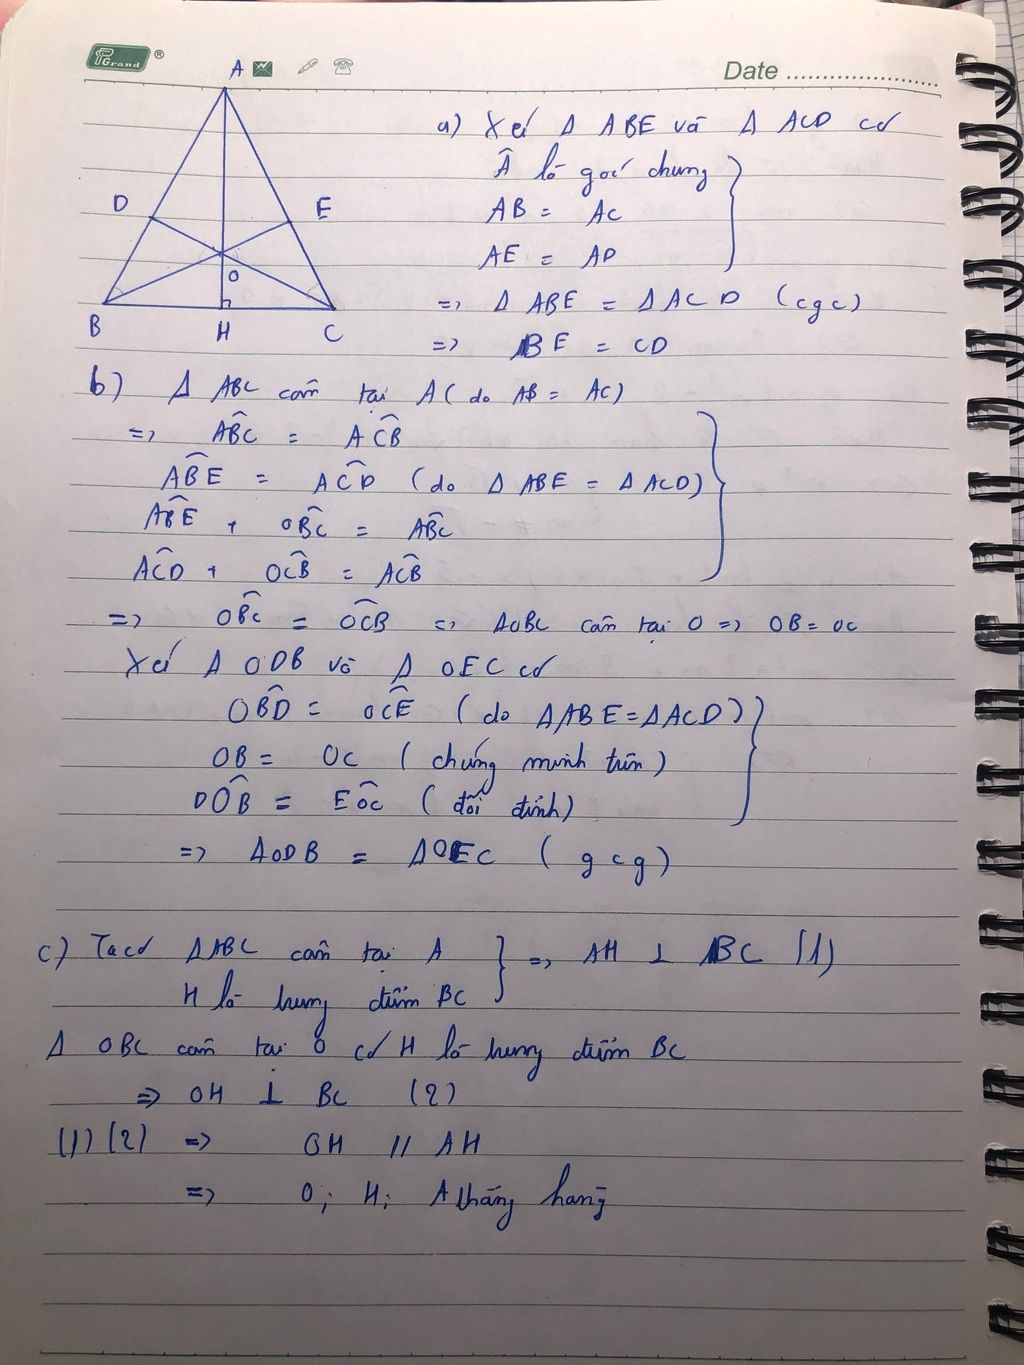 PGrand ®
Date
A
D
E
O
B
H
C
a) Xét Δ ABE và Δ ACD có
Â là góc chung
AB = AC
AE = AD
=> Δ ABE = Δ ACD (cgc)
=> BE = CD
b) Δ ABC cân tại A (do AB = AC)
=> ABC = ACB
ABE = ACD (do Δ ABE = Δ ACD)
ABE + OBC = ABC
ACD + OCB = ACB
=> OBC = OCB => ΔOBC cân tại O => OB = OC
Xét Δ ODB và Δ OEC có
OBD = OCE (do ΔABE = ΔACD)
OB = OC (chứng minh trên)
DOB = EOC (đối đỉnh)
=> ΔODB = ΔOEC (gcg)
c) Ta có ΔABC cân tại A
H là trung điểm BC
=> AH ⊥ BC (1)
Δ OBC cân tại O có H là trung điểm BC
=> OH ⊥ BC (2)
(1) (2) => OH // AH
=> O; H; A thẳng hàng